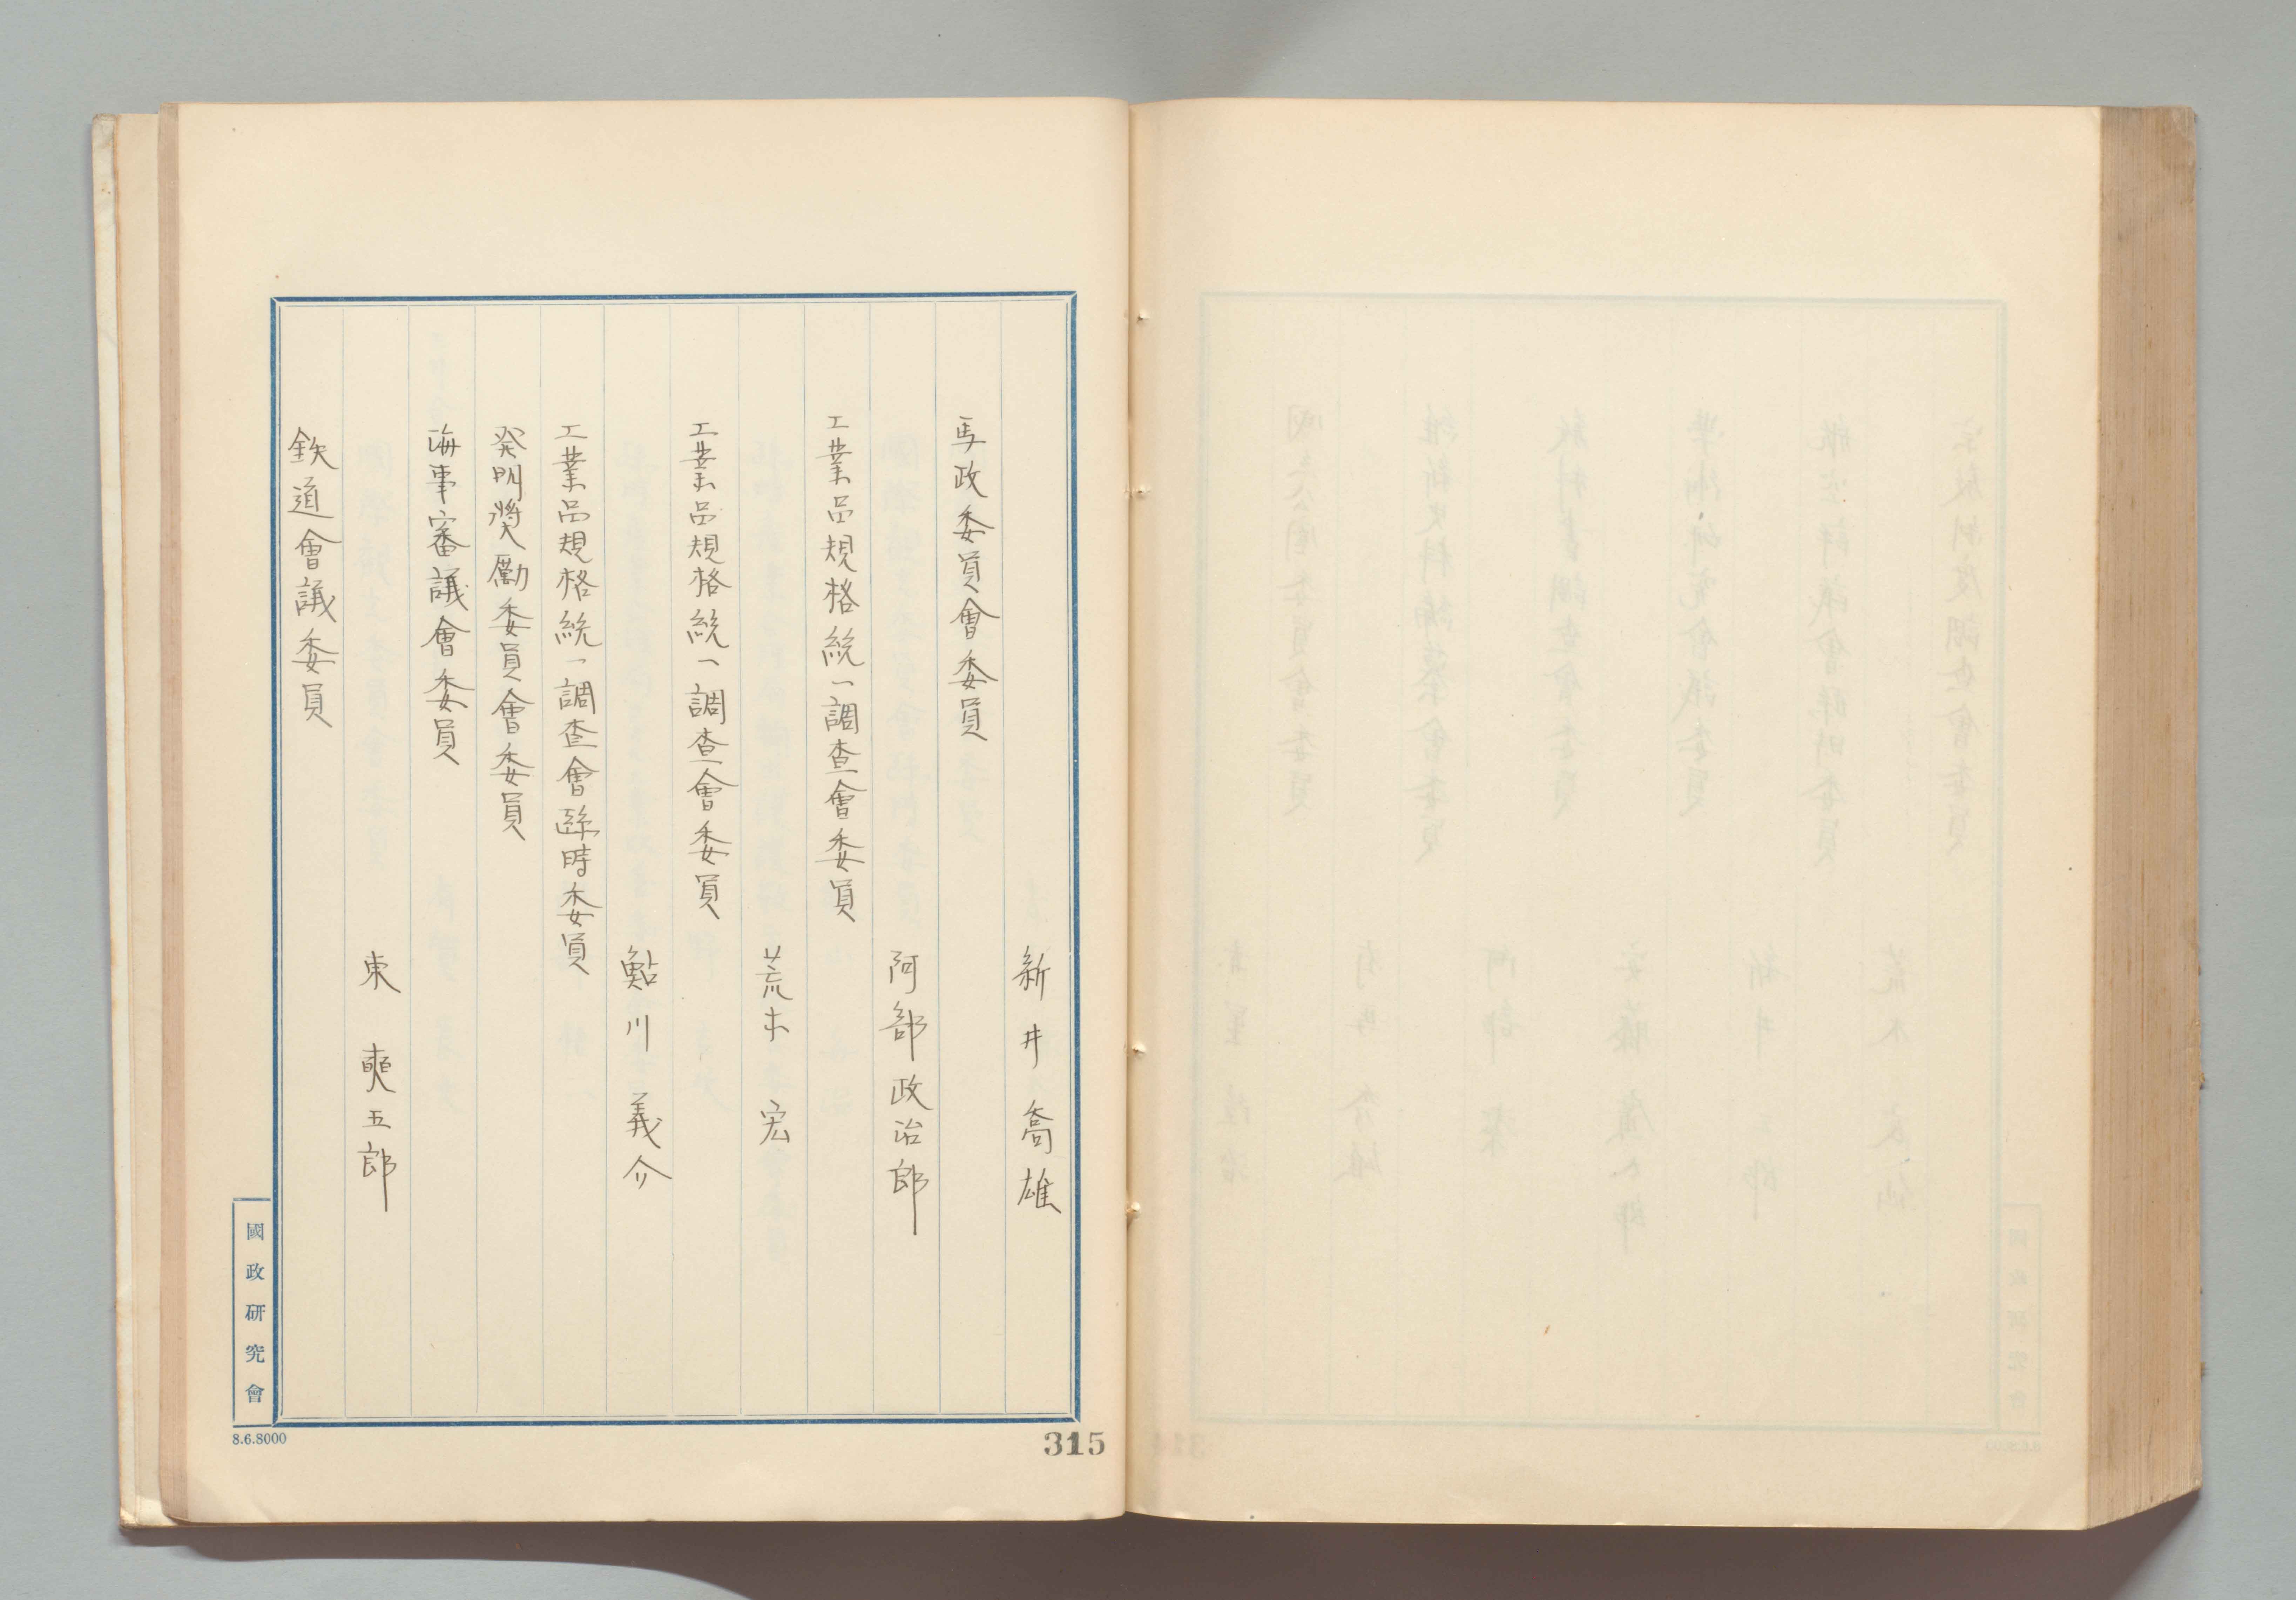 新井喬雄
馬政委員會委員
阿部政治郎
工業品規格統一調查會委員
荒木宏
工業品規格統一調查會委員
鮎川義介
工業品規格統一調查會臨時委員
発明奬勵委員會委員
海事審議會委員
東奭五郎
鉄道會議委員
國政研究會
8.6.8000
315